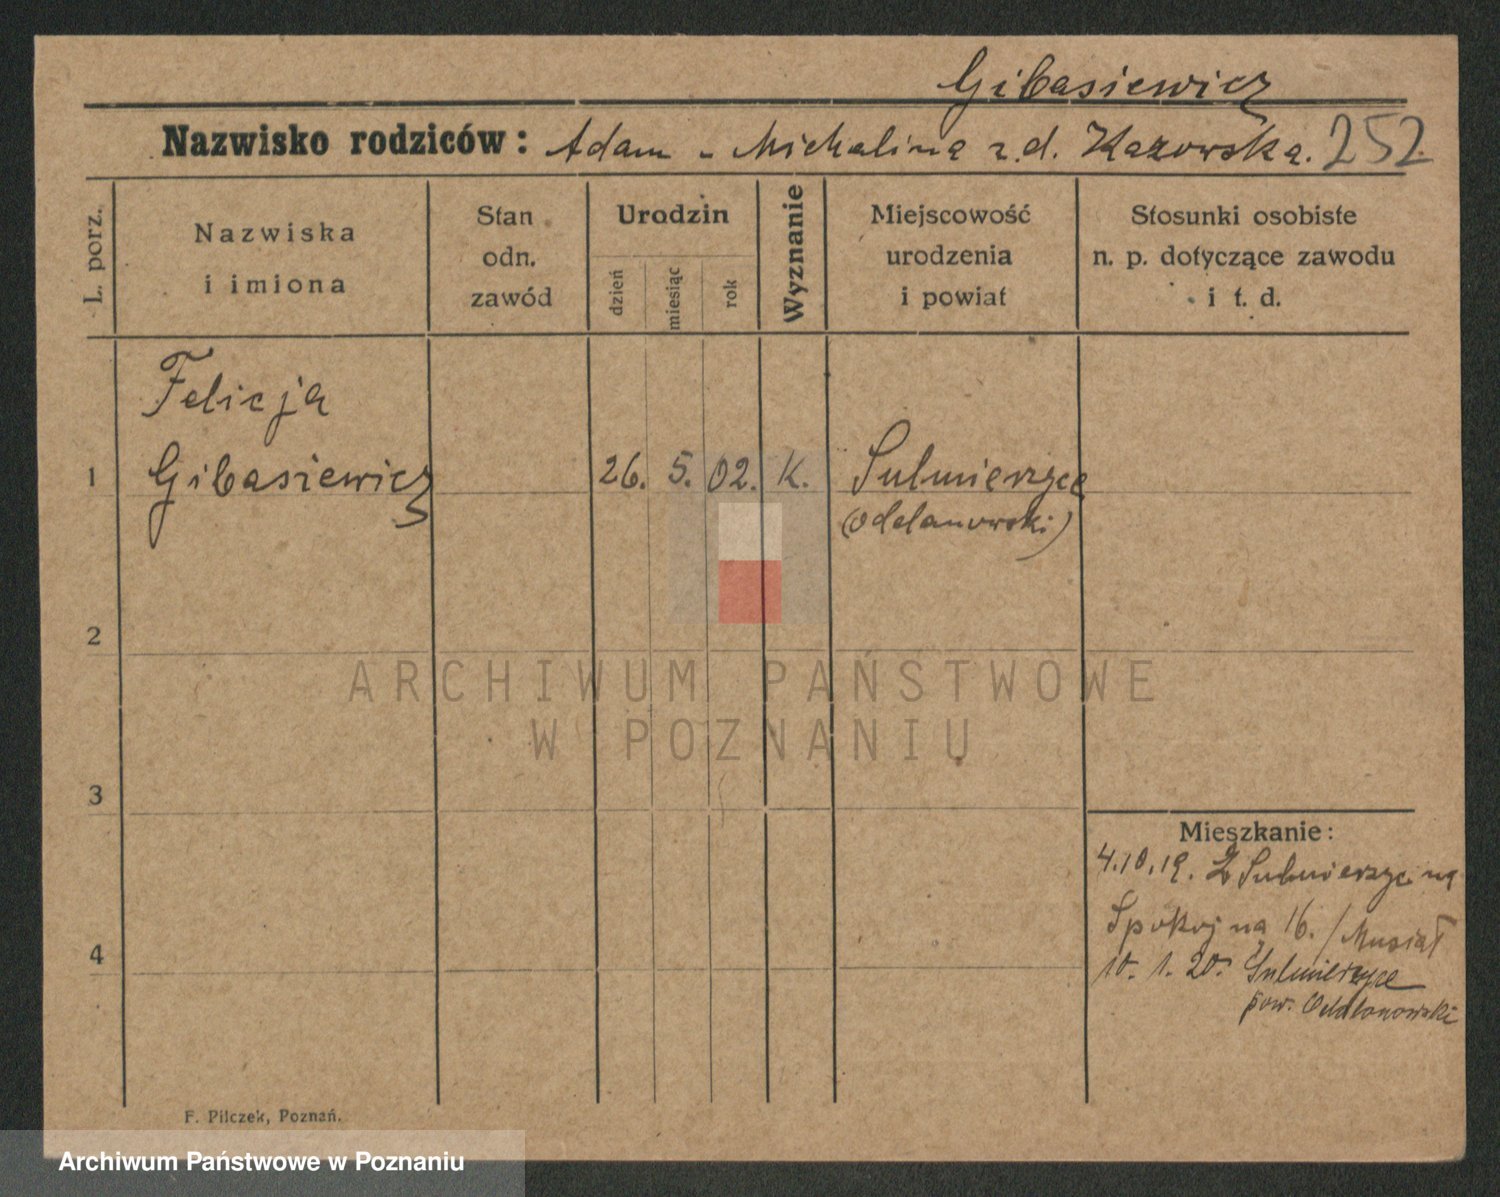 Gibasiewicz
Nazwisko rodziców: Adam - Michalina z.d. Kazowska. 252
L. porz.
Nazwiska
i imiona
Stan
odn.
zawód
Urodzin
dzień
miesiąc
rok
Wyznanie
Miejscowość
urodzenia
i powiat
Stosunki osobiste
n. p. dotyczące zawodu
i t. d.
Felicja
1 Gibasiewicz 26. 5. 02. K. Sulmierzyce
(odolanowski)
2
ARCHIWUM PAŃSTWOWE
W POZNANIU
3
Mieszkanie:
4.10.19. Z Sulmierzyc na
Spokojna 16. / Musiał
4
10. 1. 20. Sulmierzyce
pow. Odolanowski
F. Pilczek, Poznań.
Archiwum Państwowe w Poznaniu